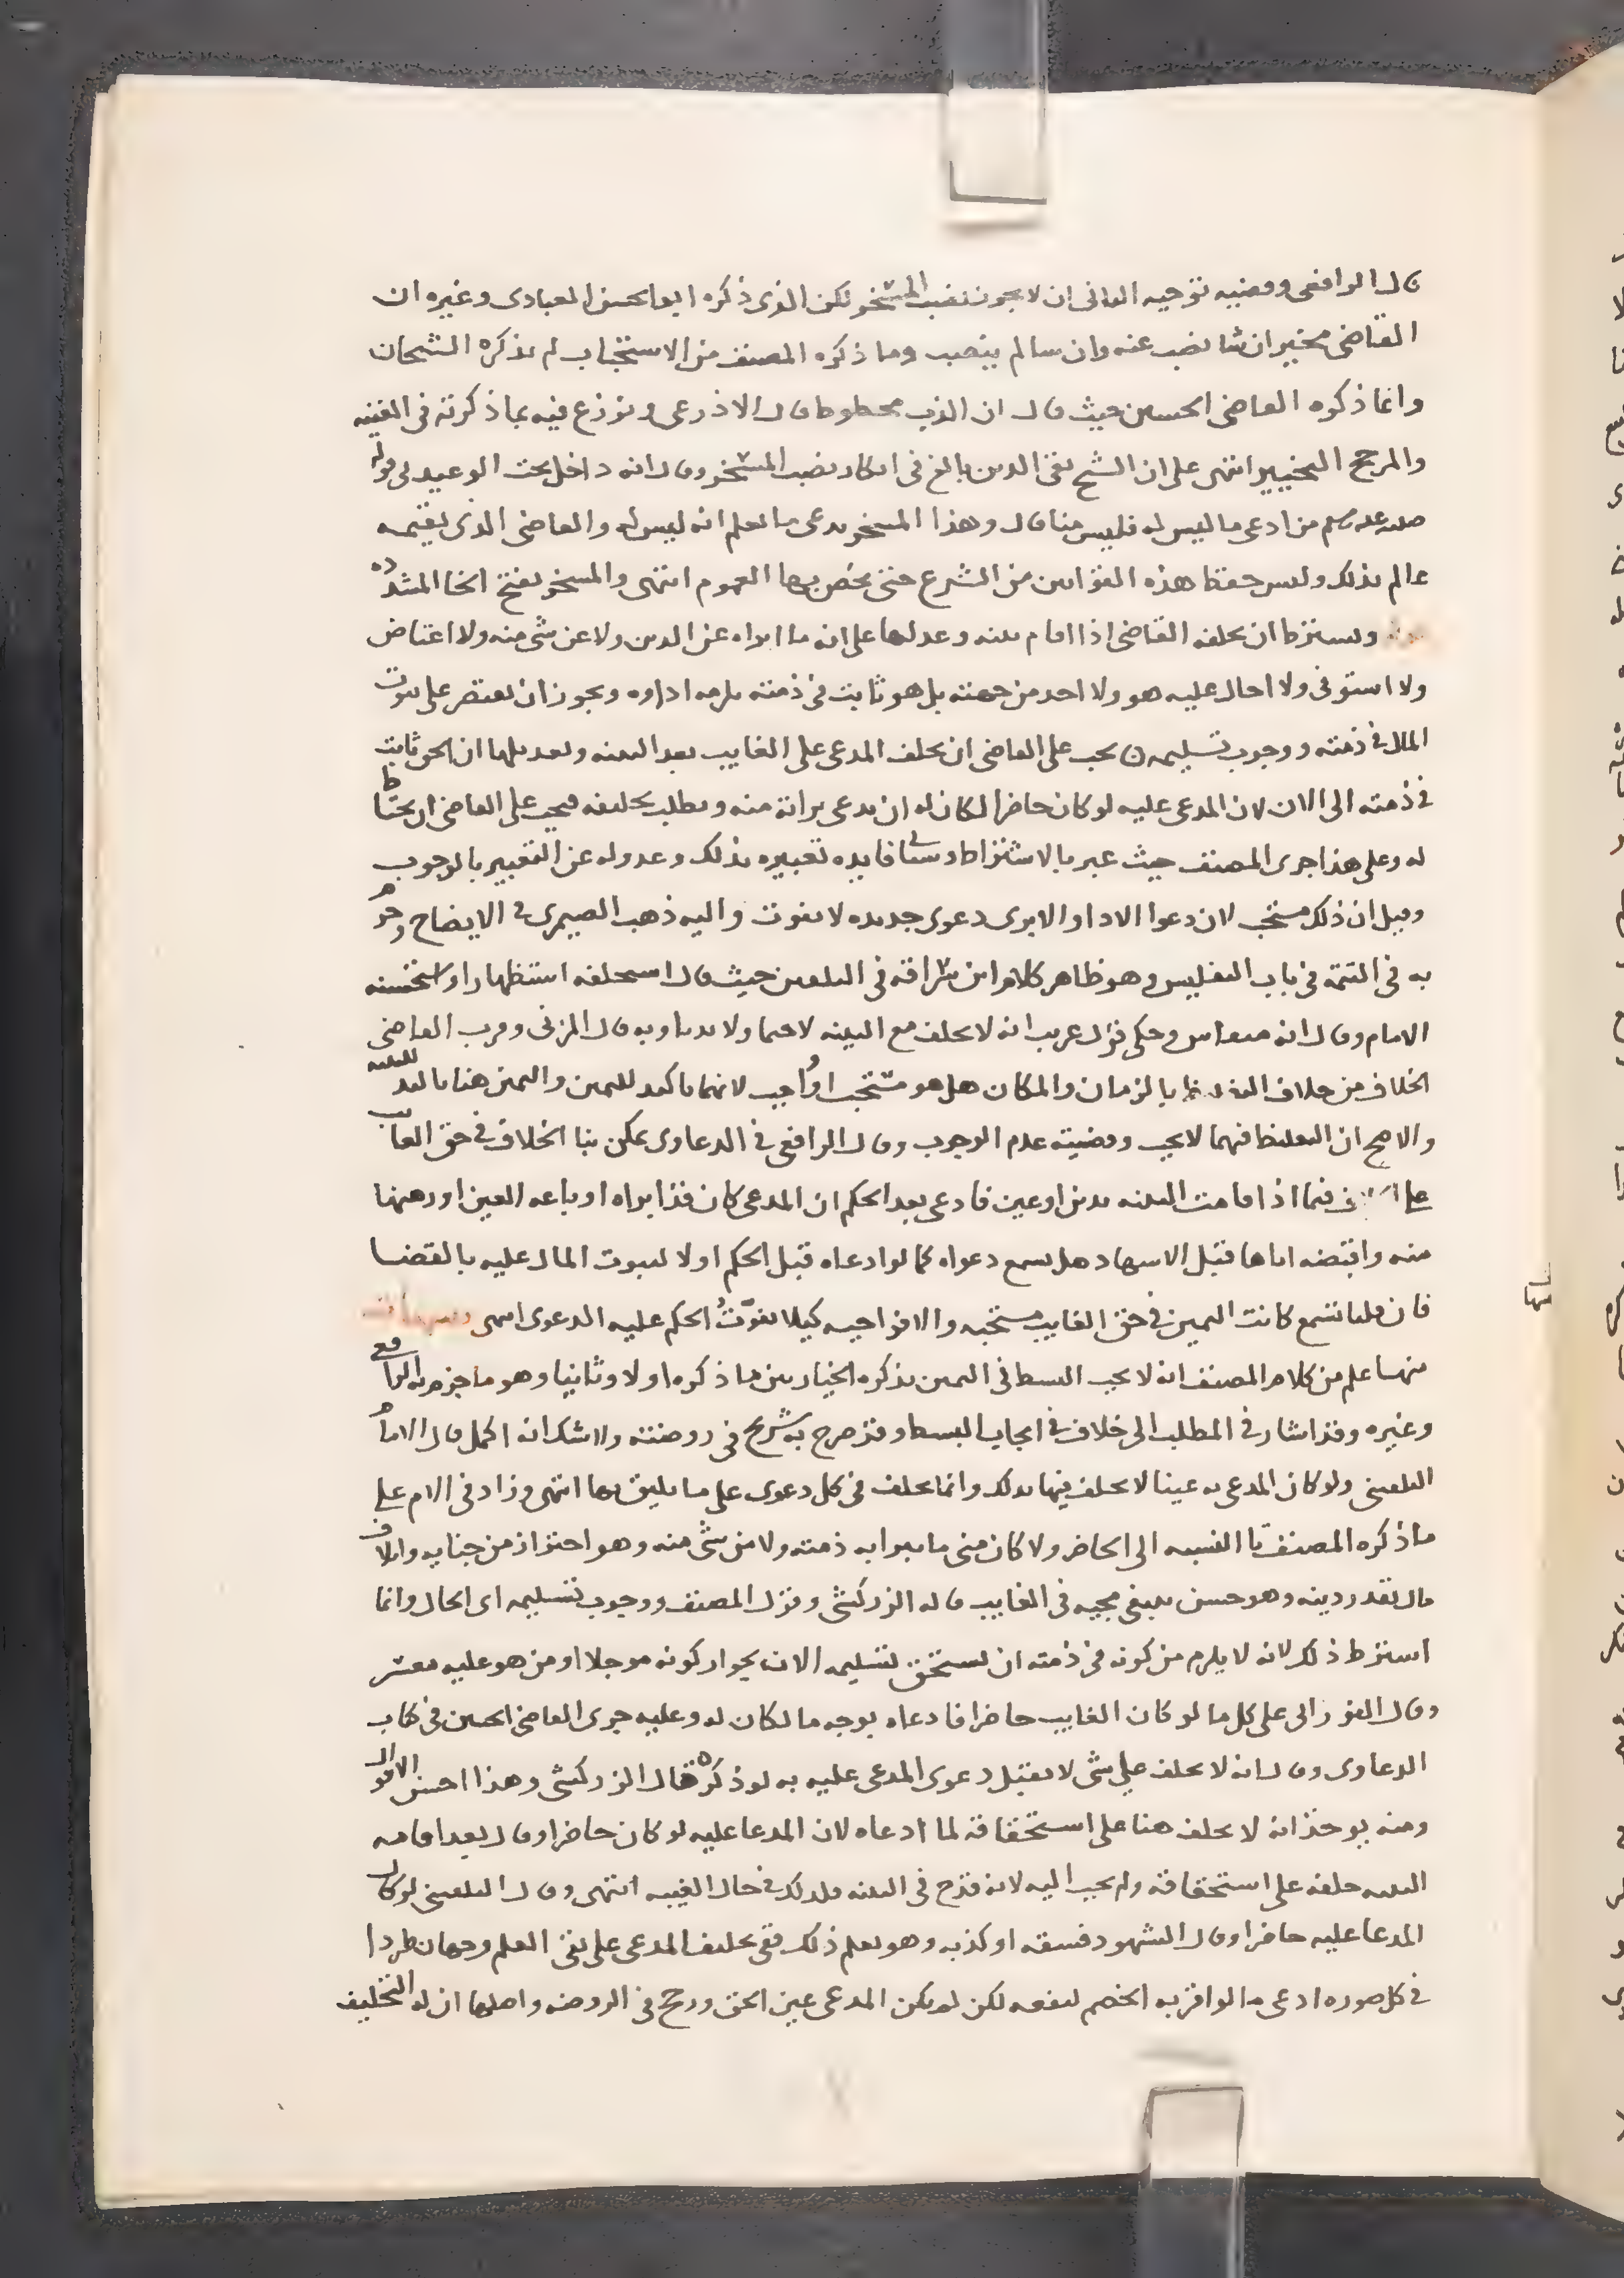 قال الرافعي وقضية توجيه العراقي ان لا يجوز نصب المسخر لكن الذي ذكره ابو الحسن العبادي وغيره ان
القاضي مخير ان شا نصب عنه وان شا لم ينصب وما ذكره المصنف من الاستحباب لم يذكره الشيخان
وانما ذكره القاضي الحسين حيث قال ان الندب محطوط قال الاذرعي ونوزع فيه بما ذكرته في الغنيه
والمرجح التخيير انتهى على ان الشيخ تقي الدين بالغ في انكار نصب المسخر وقال انه داخل تحت الوعيد في قوله
صلى الله عليه وسلم من ادعى ما ليس له فليس منا قال وهذا المسخر يدعى ما يعلم انه ليس له والقاضي الذي يقيمه
عالم بذلك وليس حفظنا هذه القوانين من الشرع حتى يخص بها العموم انتهى والمسخر بفتح الخا المشدده
ويشترط ان يحلفه القاضي اذا اقام بينه وعدلها على انه ما ابراه عن الدين ولا عن شي منه ولا اعتاض
ولا استوفى ولا احال عليه هو ولا احد من جهته بل هو ثابت في ذمته يلزمه اداوه ويجوز ان يقتصر على ثبوت
المال في ذمته ووجوب تسليمه ن يجب على القاضي ان يحلف المدعى على الغايب بعد البينه وتعديلها ان الحق ثابت
في ذمته الى الان لان المدعى عليه لو كان حاضرا لكان له ان يدعى براته منه ويطلب تحليفه فيجب على القاضي ان يحتاط
له وعلى هذا جرى المصنف حيث عبر بالاشتراط وستاتي فايده تعبيره بذلك وعدوله عن التعبير بالوجوب
وقيل ان ذلك مستحب لان دعوا الادا او الابرى دعوى جديده لا تفوت واليه ذهب الصيمري في الايضاح وجزم
به في التتمة في باب التفليس وهو ظاهر كلام ابن سراقة في التلقين حيث قال استحلفه استظهارا واستحسنه
الامام وقال انه منقاس وحكى قول غريب انه لا يحلف مع البينه لا حتما ولا ندبا وبه قال المزني وقرب القاضي
الخلاف من خلاف التغليظ بالزمان والمكان هل هو مستحب او واجب لانهما تاكيد لليمين واليمين هنا تاكيد للبينه
والاصح ان التغليظ فيهما لا يجب وقضيته عدم الوجوب وقال الرافعي في الدعاوى يمكن بنا الخلاف في حق الغايب
على الخلاف فيما اذا قامت البينه بدين او عين فادعى بعد الحكم ان المدعى كان قد ابراه او باعه العين او رهنها
منه واقبضه اياها قبل الاشهاد هل يسمع دعواه كما لو ادعاه قبل الحكم او لا لثبوت المال عليه بالقضا
فان قلنا تسمع كانت اليمين في حق الغايب مستحبه والا فواجبه كيلا يفوّت الحكم عليه الدعوى انتهى
منها علم من كلام المصنف انه لا يجب البسط في اليمين بذكره الخيار بين ما ذكره اولا وثانيا وهو ما جزم به الرافعي
وغيره وقد اشار في المطلب الى خلاف في ايجاب البسط وقد صرح به شريح في روضته ولا شك انه اكمل قال الامام
البلقيني ولو كان المدعى به عينا لا يحلف فيها بذلك وانما يحلف في كل دعوى على ما يليق بها انتهى وزاد في الام على
ما ذكره المصنف بالنسبه الى الحاضر ولا كان مني ما يبرا به ذمته ولا من شي منه وهو احتراز من جنايه واتلاف
مال بقدر دينه وهو حسن ينبغي مجيه في الغايب قاله الزركشي وقول المصنف ووجوب تسليمه اى الحال وانما
اشترط ذلك لانه لا يلزم من كونه في ذمته ان يستحق تسليمه الان بجواز كونه موجلا او من هو عليه معسر
وقال الفوراني على كل ما لو كان الغايب حاضرا فادعاه بوجه ما لكان له وعليه جرى القاضي الحسين في كتاب
الدعاوى وقال انه لا يحلف على شي لا يقبل دعوى المدعى عليه به لو ذكره قال الزركشي وهذا احسن الاقوال
ومنه يوخذ انه لا يحلف هنا على استحقاقه لما ادعاه لان المدعا عليه لو كان حاضرا وقال بعد اقامه
البينه حلفه على استحقاقه ولم يجب اليه لانه قدح في البينه فلذلك في حال الغيبه انتهى وقال البلقيني لو كان
المدعا عليه حاضرا وقال الشهود فسقه او كذبه وهو يعلم ذلك ففي تحليف المدعى على نفي العلم وجهان طردا
في كل صوره ادعى ما لو اقر به الخصم لنفعه لكن لم يكن المدعى عين الحق ورجح في الروضه واصلها ان له التحليف